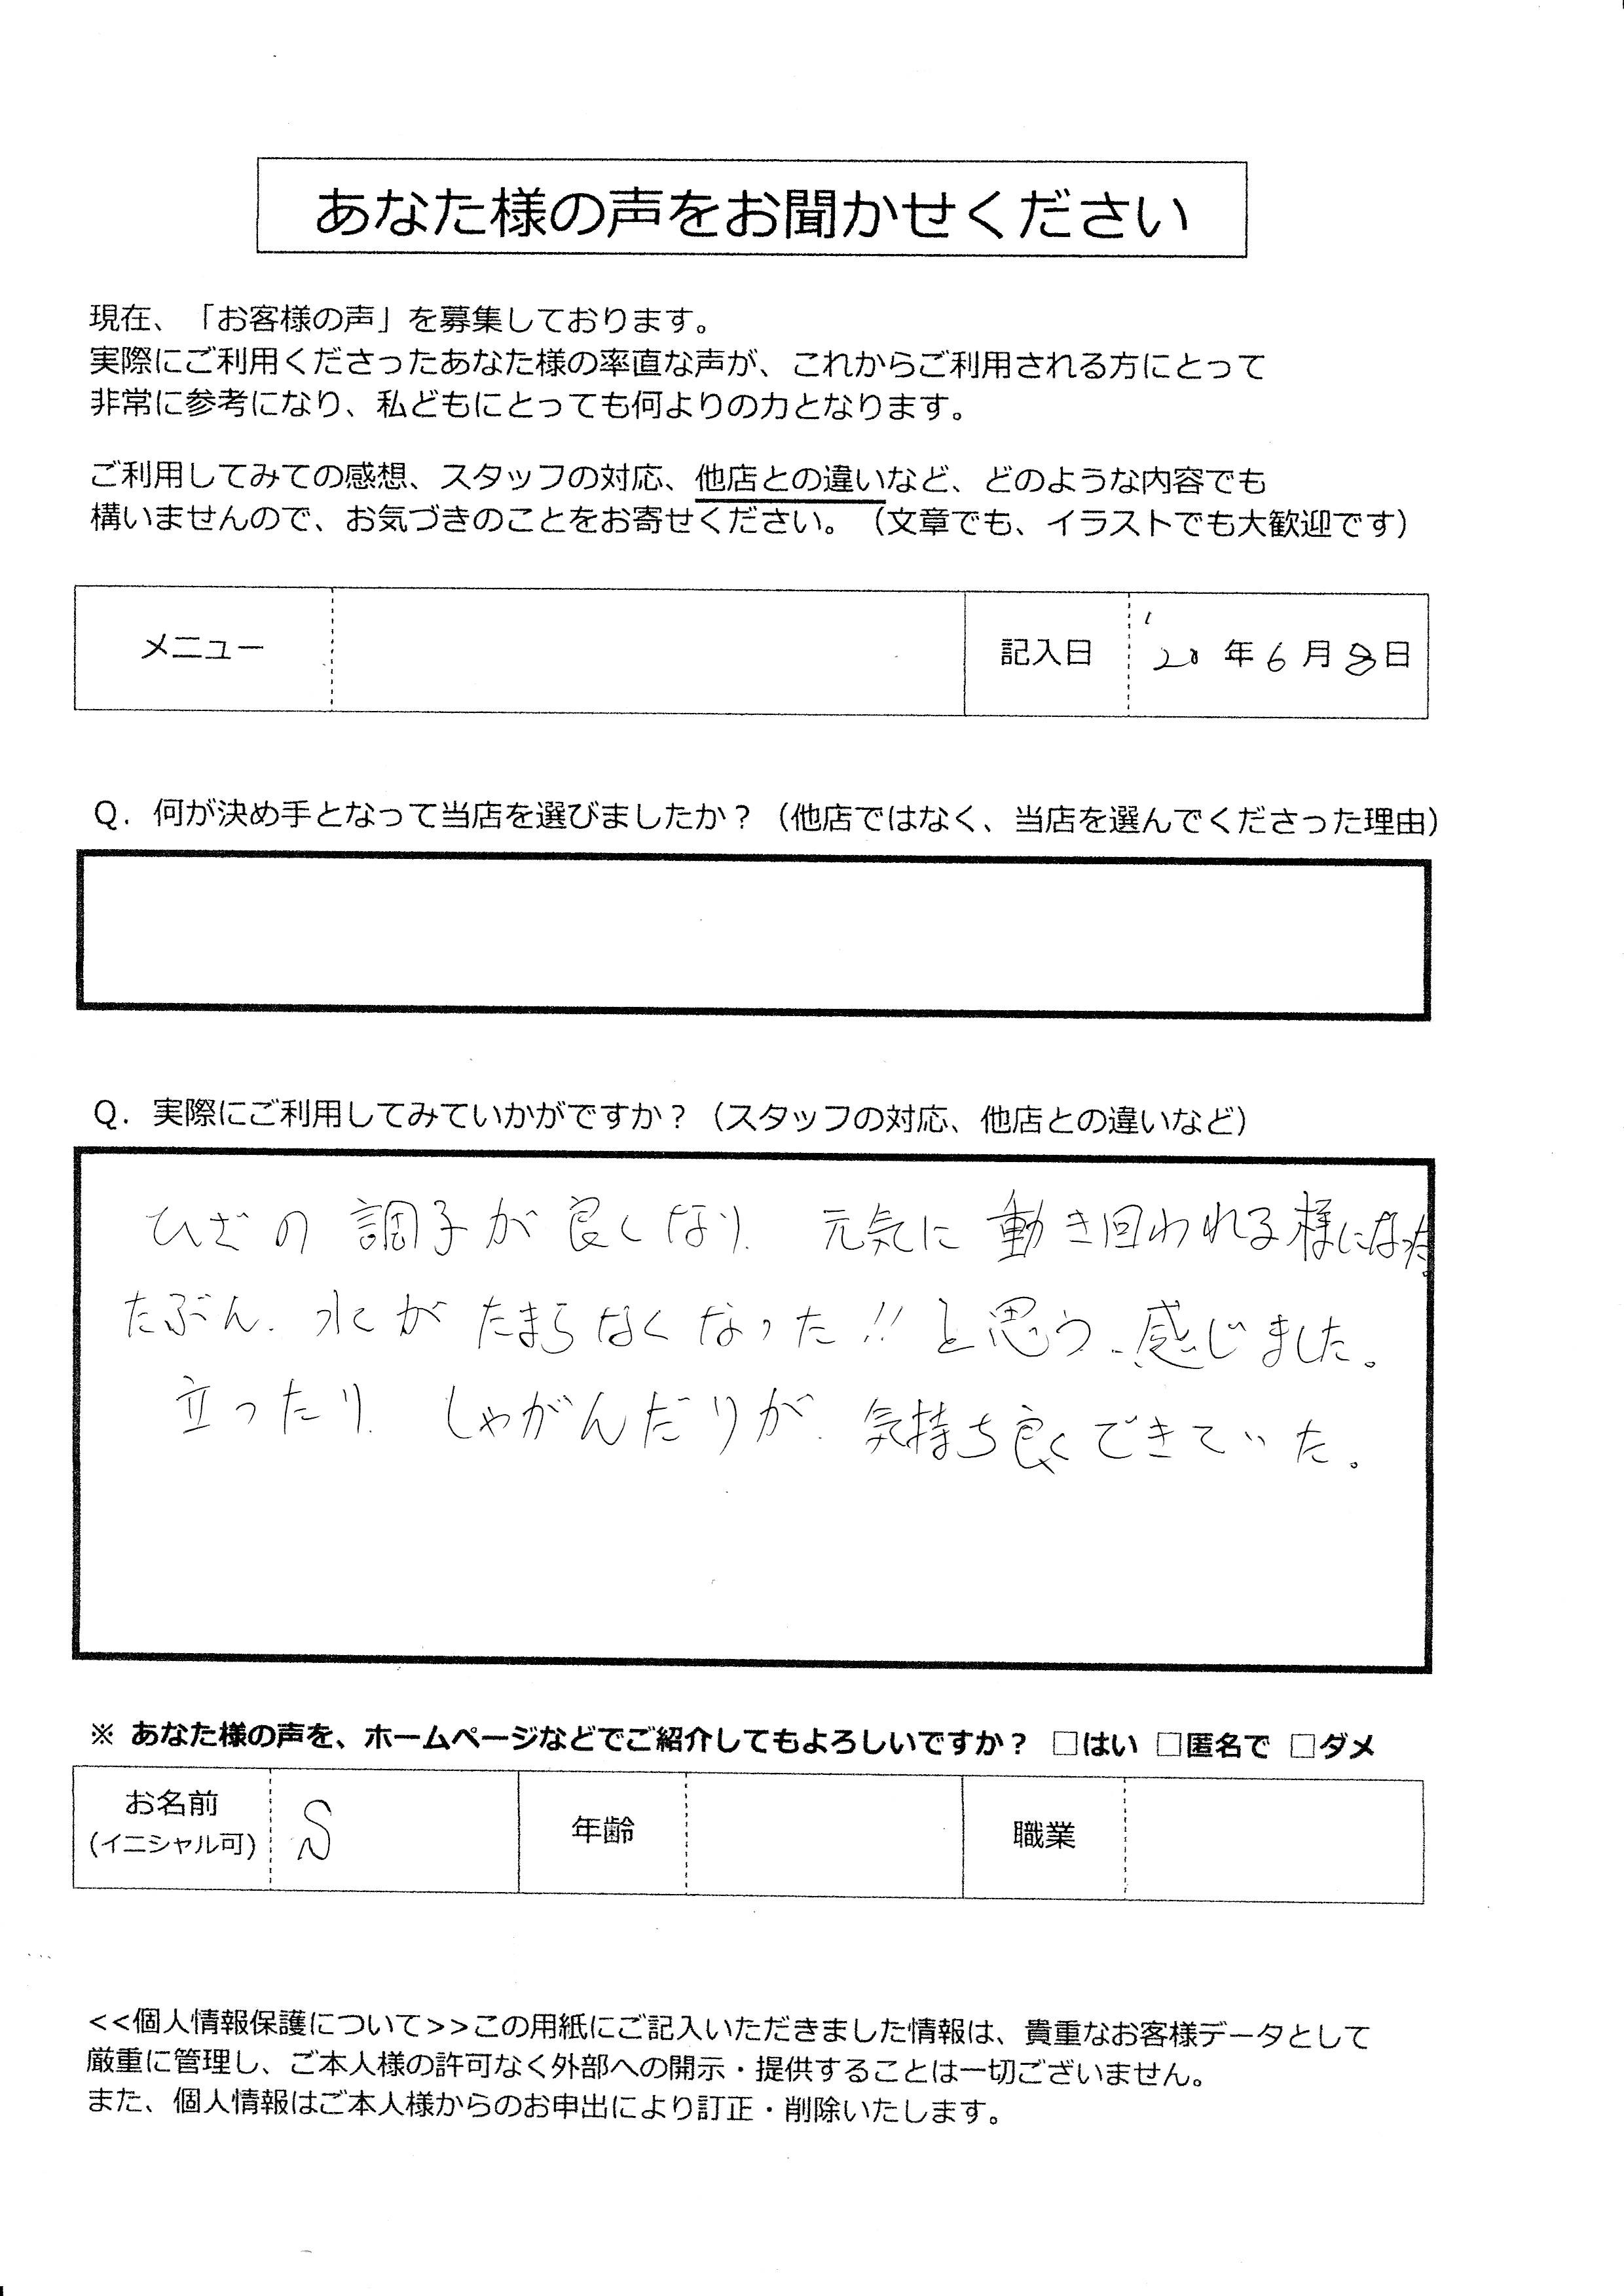 あなた様の声をお聞かせください
現在、「お客様の声」を募集しております。
実際にご利用くださったあなた様の率直な声が、これからご利用される方にとって
非常に参考になり、私どもにとっても何よりの力となります。
ご利用してみての感想、スタッフの対応、他店との違いなど、どのような内容でも
構いませんので、お気づきのことをお寄せください。（文章でも、イラストでも大歓迎です）
メニュー 記入日 年6月8日
Q．何が決め手となって当店を選びましたか？（他店ではなく、当店を選んでくださった理由）
Q．実際にご利用してみていかがですか？（スタッフの対応、他店との違いなど）
ひざの調子が良くなり、元気に動き回われる様になった。
たぶん、水がたまらなくなった!!と思う、感じました。
立ったり、しゃがんだりが、気持ち良くできていた。
※ あなた様の声を、ホームページなどでご紹介してもよろしいですか？ □はい □匿名で □ダメ
お名前 S 年齢 職業
(イニシャル可)
<<個人情報保護について>>この用紙にご記入いただきました情報は、貴重なお客様データとして
厳重に管理し、ご本人様の許可なく外部への開示・提供することは一切ございません。
また、個人情報はご本人様からのお申出により訂正・削除いたします。